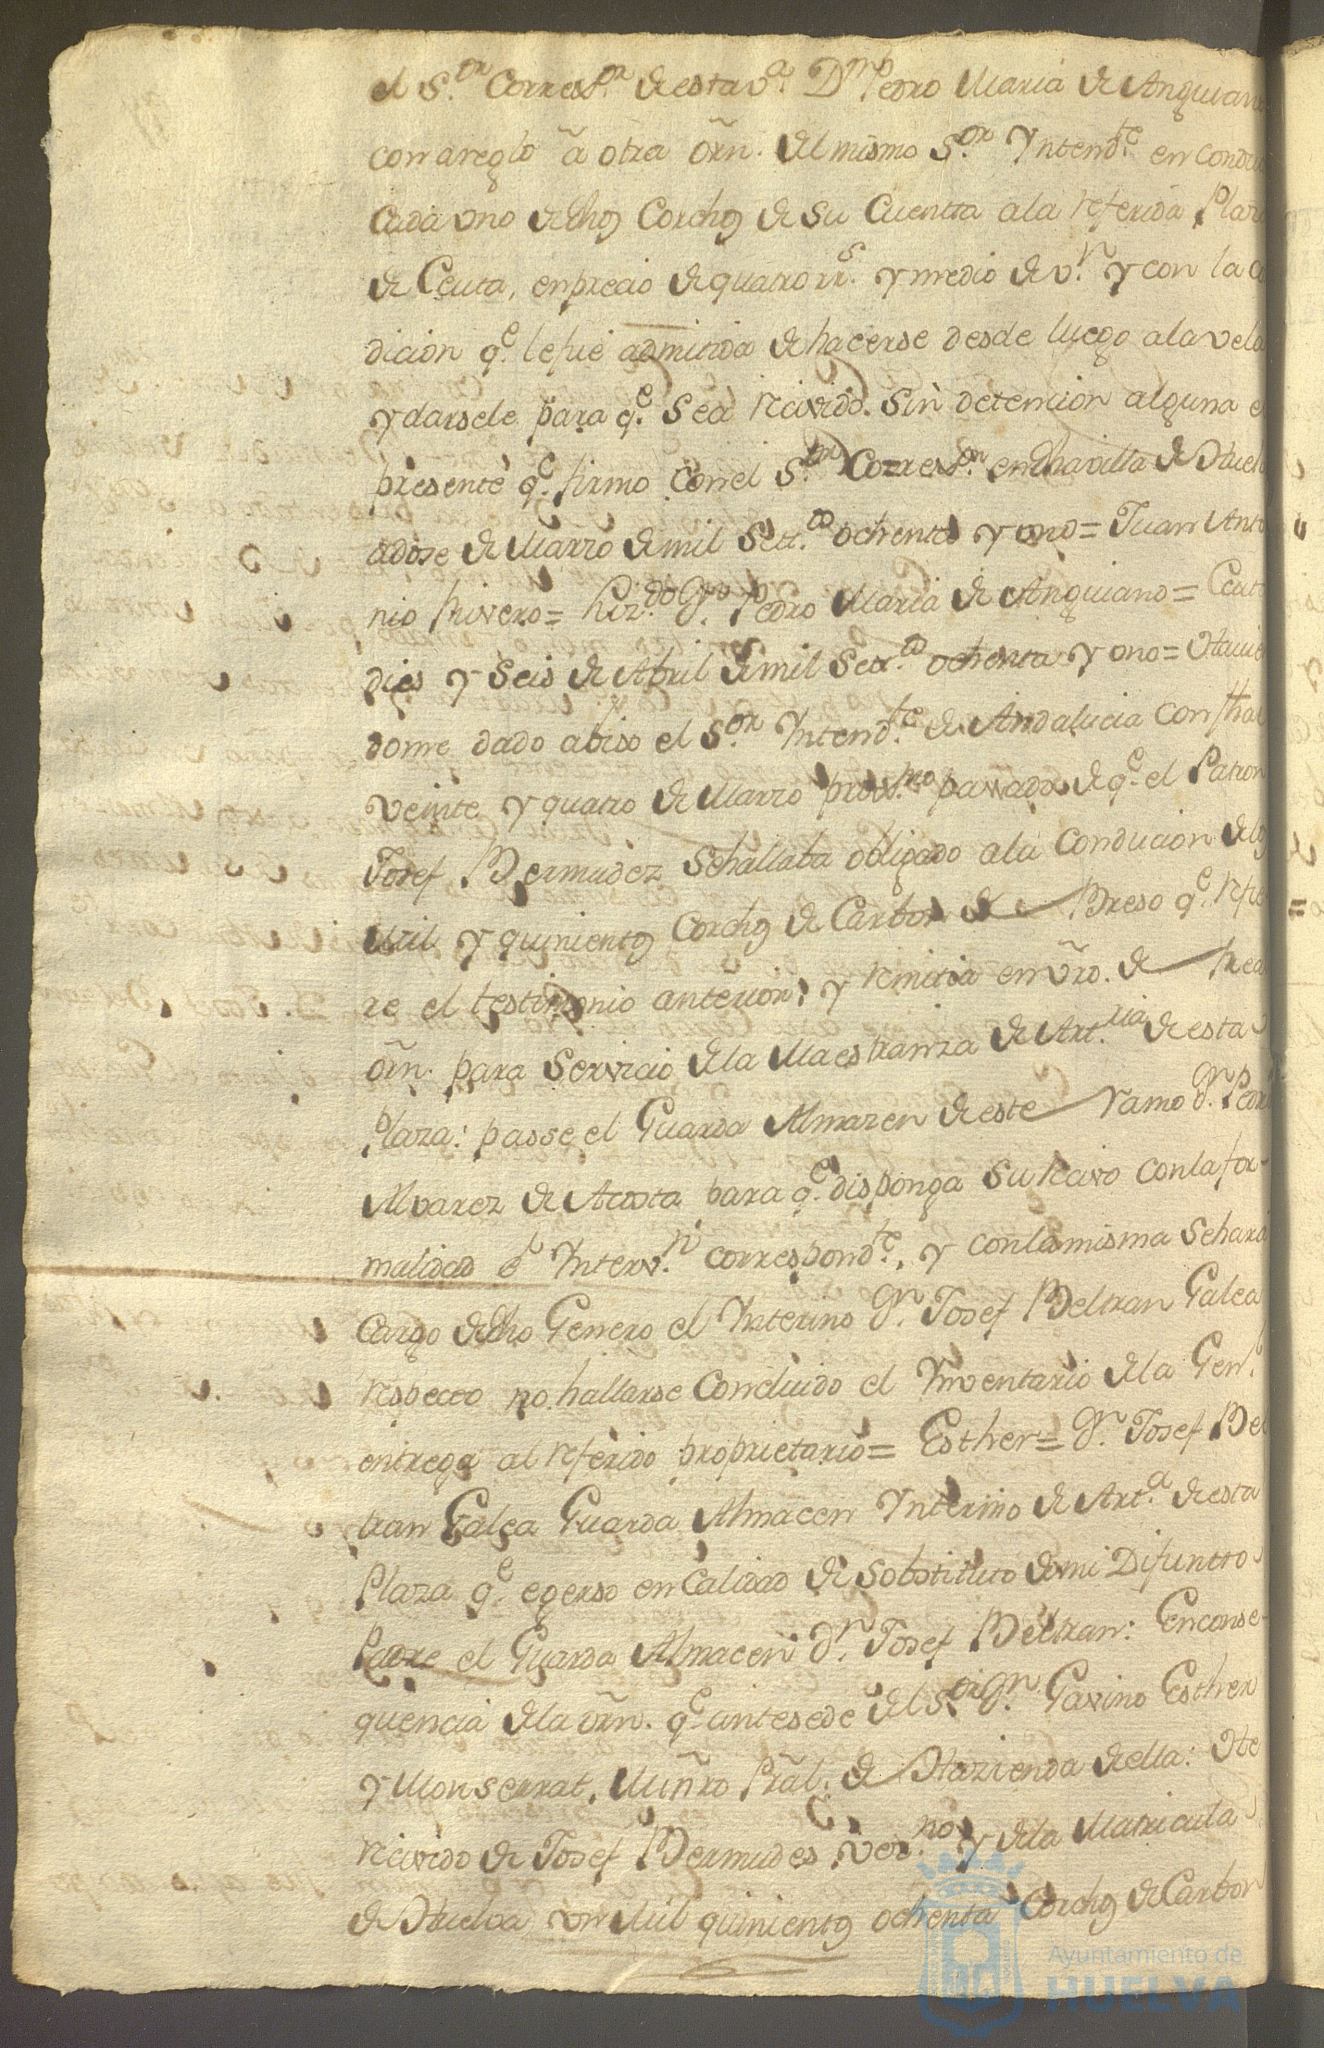 el S.or Corres.or de esta v.a D.n Pedro Maria de Anquiano
con areglo â otra orn. del mismo S.or Yntend.te en condu
cada uno de dhos Corchos de su Cuentta a la referida Plaza
de Ceuta, en precio de quatro rr.s y medio de v.n y con la co
dicion q.e le fue admitida de hacerse desde luego a la vela
y darsele para q.e sea recivido sin detencion alguna el
presente q.e firmo con el S.or Corres.or en dha villa de Huel
a dose de Marzo de mil Sett.os ochenta y uno = Juan Anto
nio Rivero = Liz.do D.n Pedro Maria de Anquiano = Ceuta
dies y Seis de Abril de mil Sett.os ochenta y uno = Havien
dome dado abiso el S.or Yntend.te de Andalucia con fha
veinte y quatro de Marzo prox.mo passado de q.e el Patron
Josef Bermudez se hallaba obligado a la conducion de los
Mil y quinientos Corchos de Carbon de Breso q.e refie
re el testimonio anterior, y remitia en vro. de Rea
orn. para Servicio de la Maestranza de Art.lia de esta
Plaza: passe el Guarda Almazen de este ramo D.n Pedro
Alvarez de Acosta para q.e disponga su recivo con la for-
malidad é Yntervn. correspond.te, y con la misma se hará
cargo de dho Genero el Ynterino D.n Josef Beltran Galea
respecto no hallarse Concluido el Ynventario de la Gen.l
entrega al referido proprietario = Esther = D.n Josef Bel
tran Galea Guarda Almacen Ynterino de Art.a de esta
Plaza q.e egerso en Calidad de Sobstituto de mi Difuntto
Padre el Guarda Almacen D.n Josef Beltran: En conse-
quencia de la orn. q.e antesede del S.or D.n Gavino Esther
y Monserrat, Miñro Prâl. de Hazienda de ella: He
recivido de Josef Bermudes vez.no y de la Matricula
de Huelva un Mil quinientos ochenta Corchos de Carbon
Ayuntamiento de
HUELVA